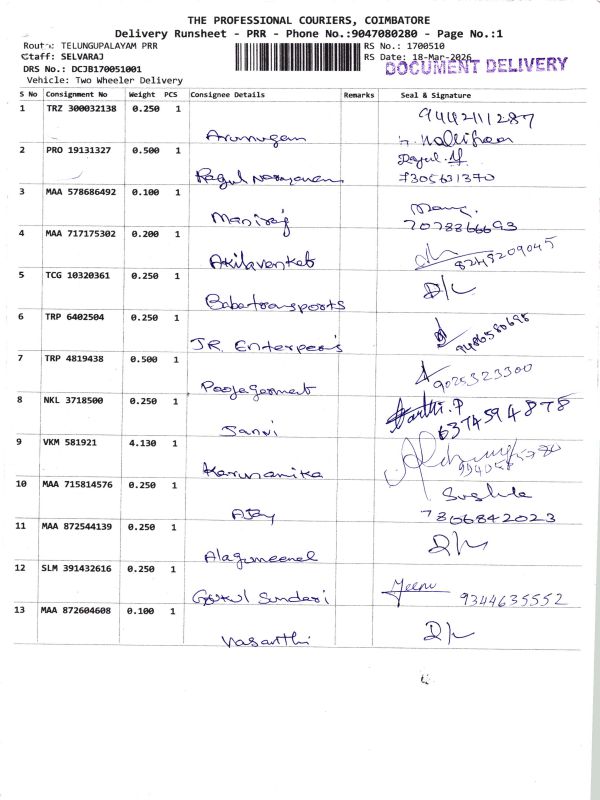 THE PROFESSIONAL COURIERS, COIMBATORE
Delivery Runsheet - PRR - Phone No.:9047080280 - Page No.:1
Route: TELUNGUPALAYAM PRR RS No.: 1700510
Staff: SELVARAJ RS Date: 18-Mar-2026
DOCUMENT DELIVERY
DRS No.: DCJB170051001
Vehicle: Two Wheeler Delivery
S No Consignment No Weight PCS Consignee Details Remarks Seal & Signature
1 TRZ 300032138 0.250 1 9442111287
Arumugam
2 PRO 19131327 0.500 1
Ragul Narayanan 7305631370
3 MAA 578686492 0.100 1
Maniraj
4 MAA 717175302 0.200 1
Akilavenkat 8248209045
5 TCG 10320361 0.250 1 D/L
Babatransports
6 TRP 6402504 0.250 1
JR Enterpee's 9486580698
7 TRP 4819438 0.500 1 9025323300
Poojagarment
8 NKL 3718500 0.250 1
Sanvi 6374594878
9 VKM 581921 4.130 1
Karunanika
10 MAA 715814576 0.250 1
Ajay 7806842023
11 MAA 872544139 0.250 1 D/L
Alagumeenal
12 SLM 391432616 0.250 1
Gokul Sundari 9344635552
13 MAA 872604608 0.100 1 D/L
Vasanthi